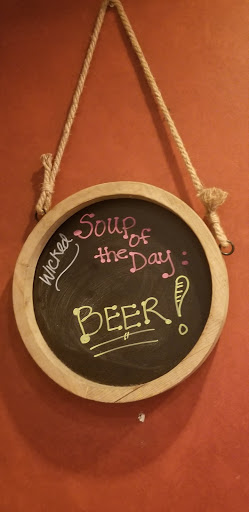 Wicked
Soup
of
the Day:
BEER!